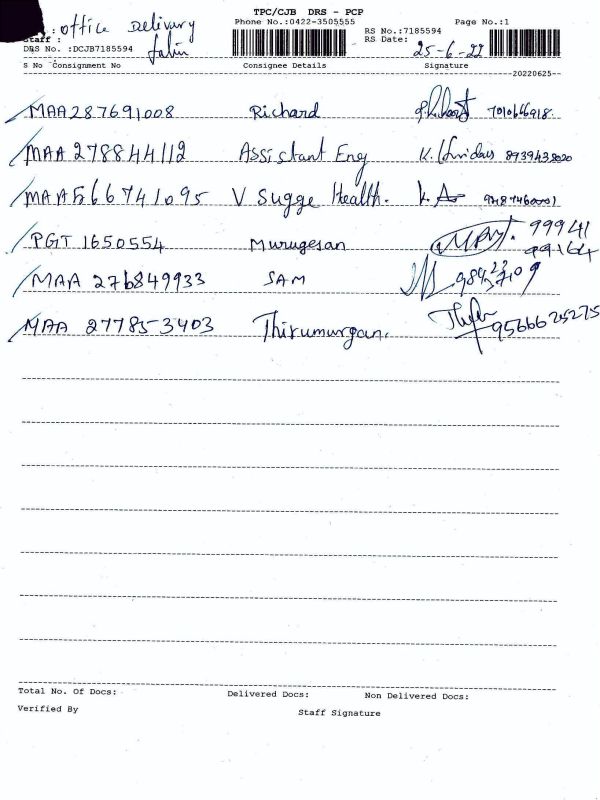 TPC/CJB DRS - PCP
: office Delivery Phone No.:0422-3505555 Page No.:1
Staff : RS No.:7185594
DRS No. :DCJB7185594 RS Date: 25-6-22
S No Consignment No Consignee Details Signature
20220625
MAA287691008 Richard 7010666918.
MAA 278844112 Assistant Eng K. 8939435020
MAA566741095 V Sugge Health.
PGT 1650554 Murugesan 99941
99164
MAA 276849933 SAM
MAA 277853403 Thirumurgan. 9566625275
Total No. Of Docs: Delivered Docs: Non Delivered Docs:
Verified By Staff Signature